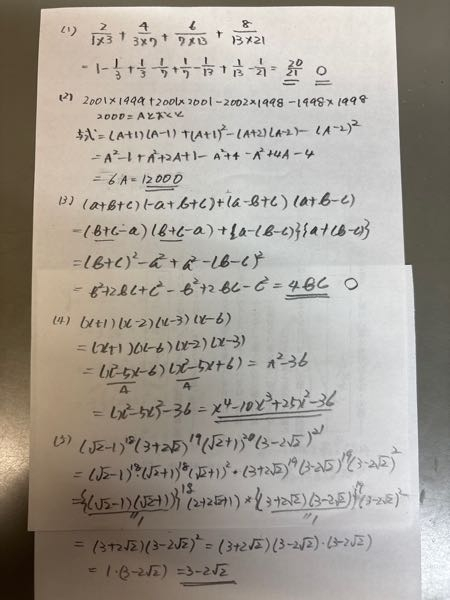 (1) 2/1×3 + 4/3×7 + 6/7×13 + 8/13×21
= 1 - 1/3 + 1/3 - 1/7 + 1/7 - 1/13 + 1/13 - 1/21 = 20/21 ○
(2) 2001×1999+2001×2001-2002×1998-1998×1998
2000=Aとおくと
与式=(A+1)(A-1)+(A+1)²-(A+2)(A-2)-(A-2)²
=A²-1+A²+2A+1-A²+4-A²+4A-4
=6A=12000
(3) (a+b+c)(-a+b+c)+(a-b+c)(a+b-c)
=(b+c-a)(b+c-a)+{a-(b-c)}{a+(b-c)}
=(b+c)²-a²+a²-(b-c)²
=b²+2bc+c²-b²+2bc-c²=4bc ○
(4) (x+1)(x-2)(x-3)(x-6)
=(x+1)(x-6)(x-2)(x-3)
=(x²-5x-6)(x²-5x+6)=A²-36
A A
=(x²-5x)²-36=x⁴-10x³+25x²-36
(5) (√2-1)¹⁸(3+2√2)¹⁹(√2+1)²⁰(3-2√2)²¹
=(√2-1)¹⁸·(√2+1)¹⁸(√2+1)²·(3+2√2)¹⁹(3-2√2)¹⁹(3-2√2)²
={(√2-1)(√2+1)}¹⁸(2+2√2+1)×{(3+2√2)(3-2√2)}¹⁹(3-2√2)²
1 1
=(3+2√2)(3-2√2)²=(3+2√2)(3-2√2)·(3-2√2)
=1·(3-2√2)=3-2√2